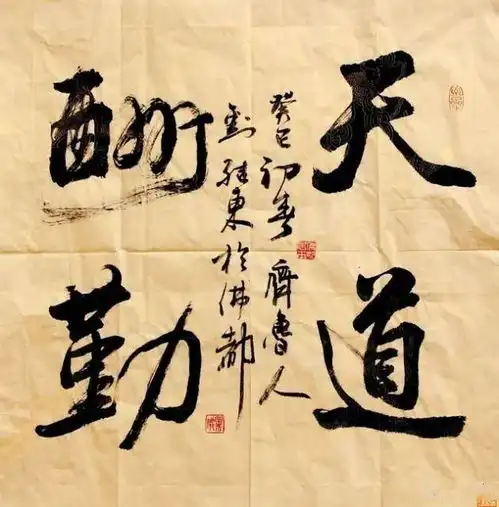 天道
酬勤
癸巳初春 齊魯人
刘 東於佛都